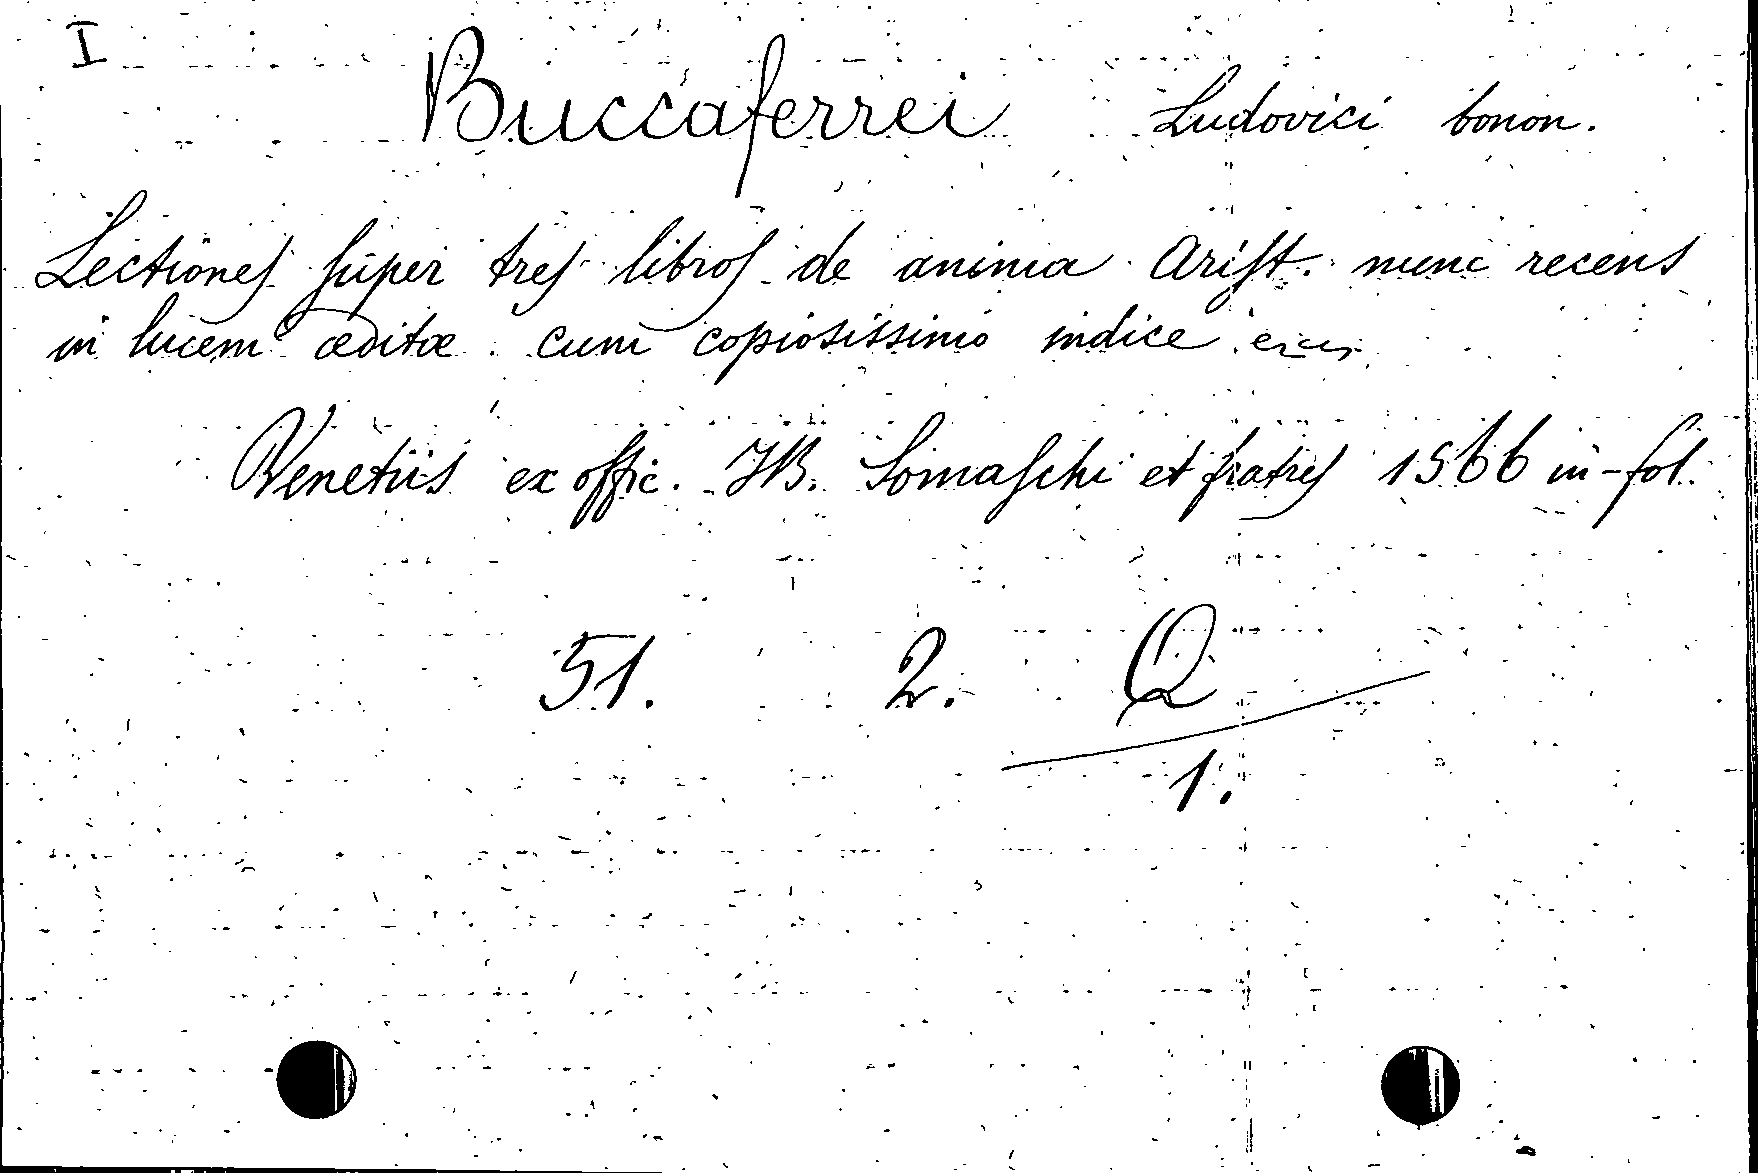 I
Buccaferrei Ludovici bonon.
Lectiones super tres libros de anima Arist. nunc recens
in lucem æditæ cum copiosissimo indice
Venetiis ex offic. JB. Somaschi et fratres 1566 in-fol.
51. 2. Q
1.